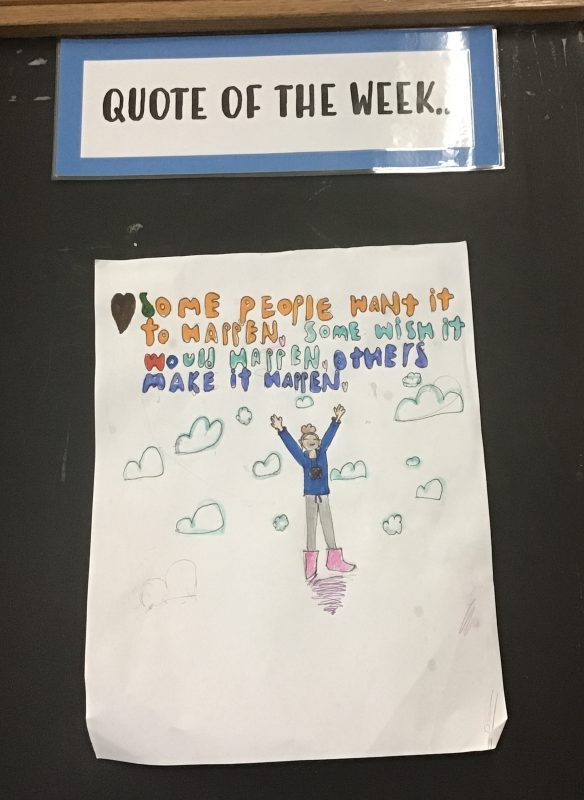 QUOTE OF THE WEEK..
SOME PEOPLE WANT it
to HAPPEN, SOME WISH it
WOULD HAPPEN, OtHERS
MAKE it HAPPEN.